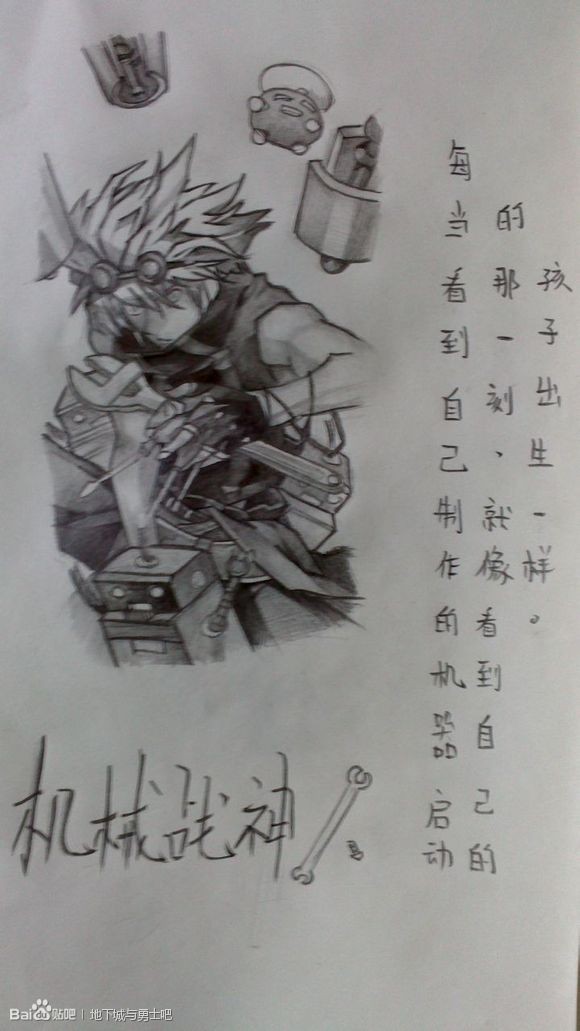 每当看到自己制作的机器启动
的那一刻，就像看到自己的
孩子出生一样。
机械战神
Bai贴吧 | 地下城与勇士吧